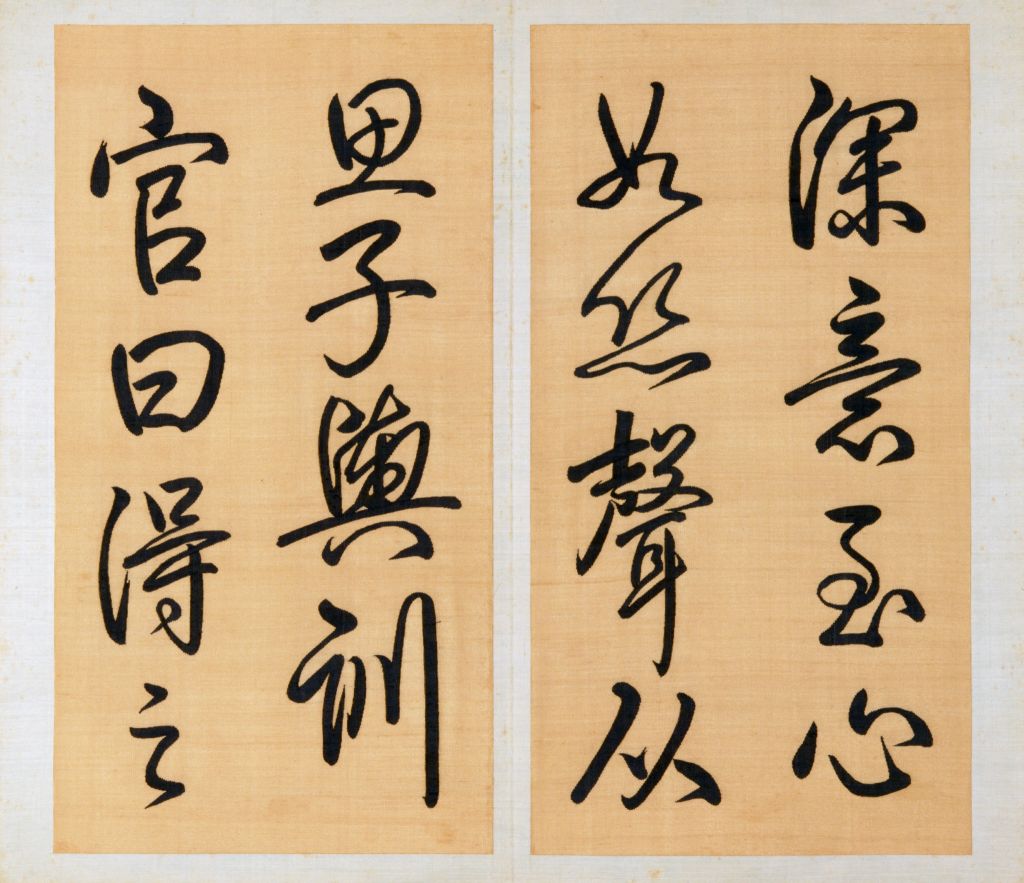 深意至心
如然聲从
思子輿訓
官曰得之